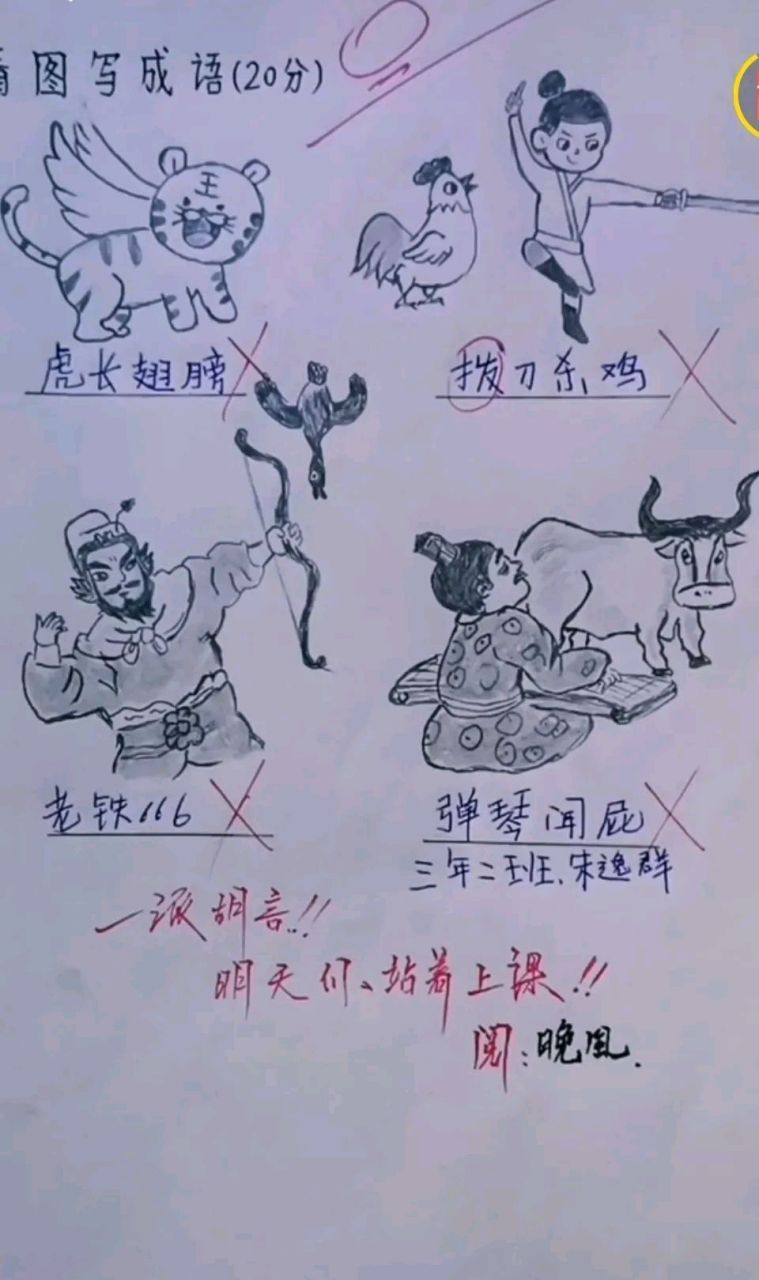 看图写成语(20分)
0
王
虎长翅膀
拨刀杀鸡
老铁666
弹琴闻屁
三年二班、宋逸群
一派胡言!!
明天们、站着上课!!
阅:晚风.